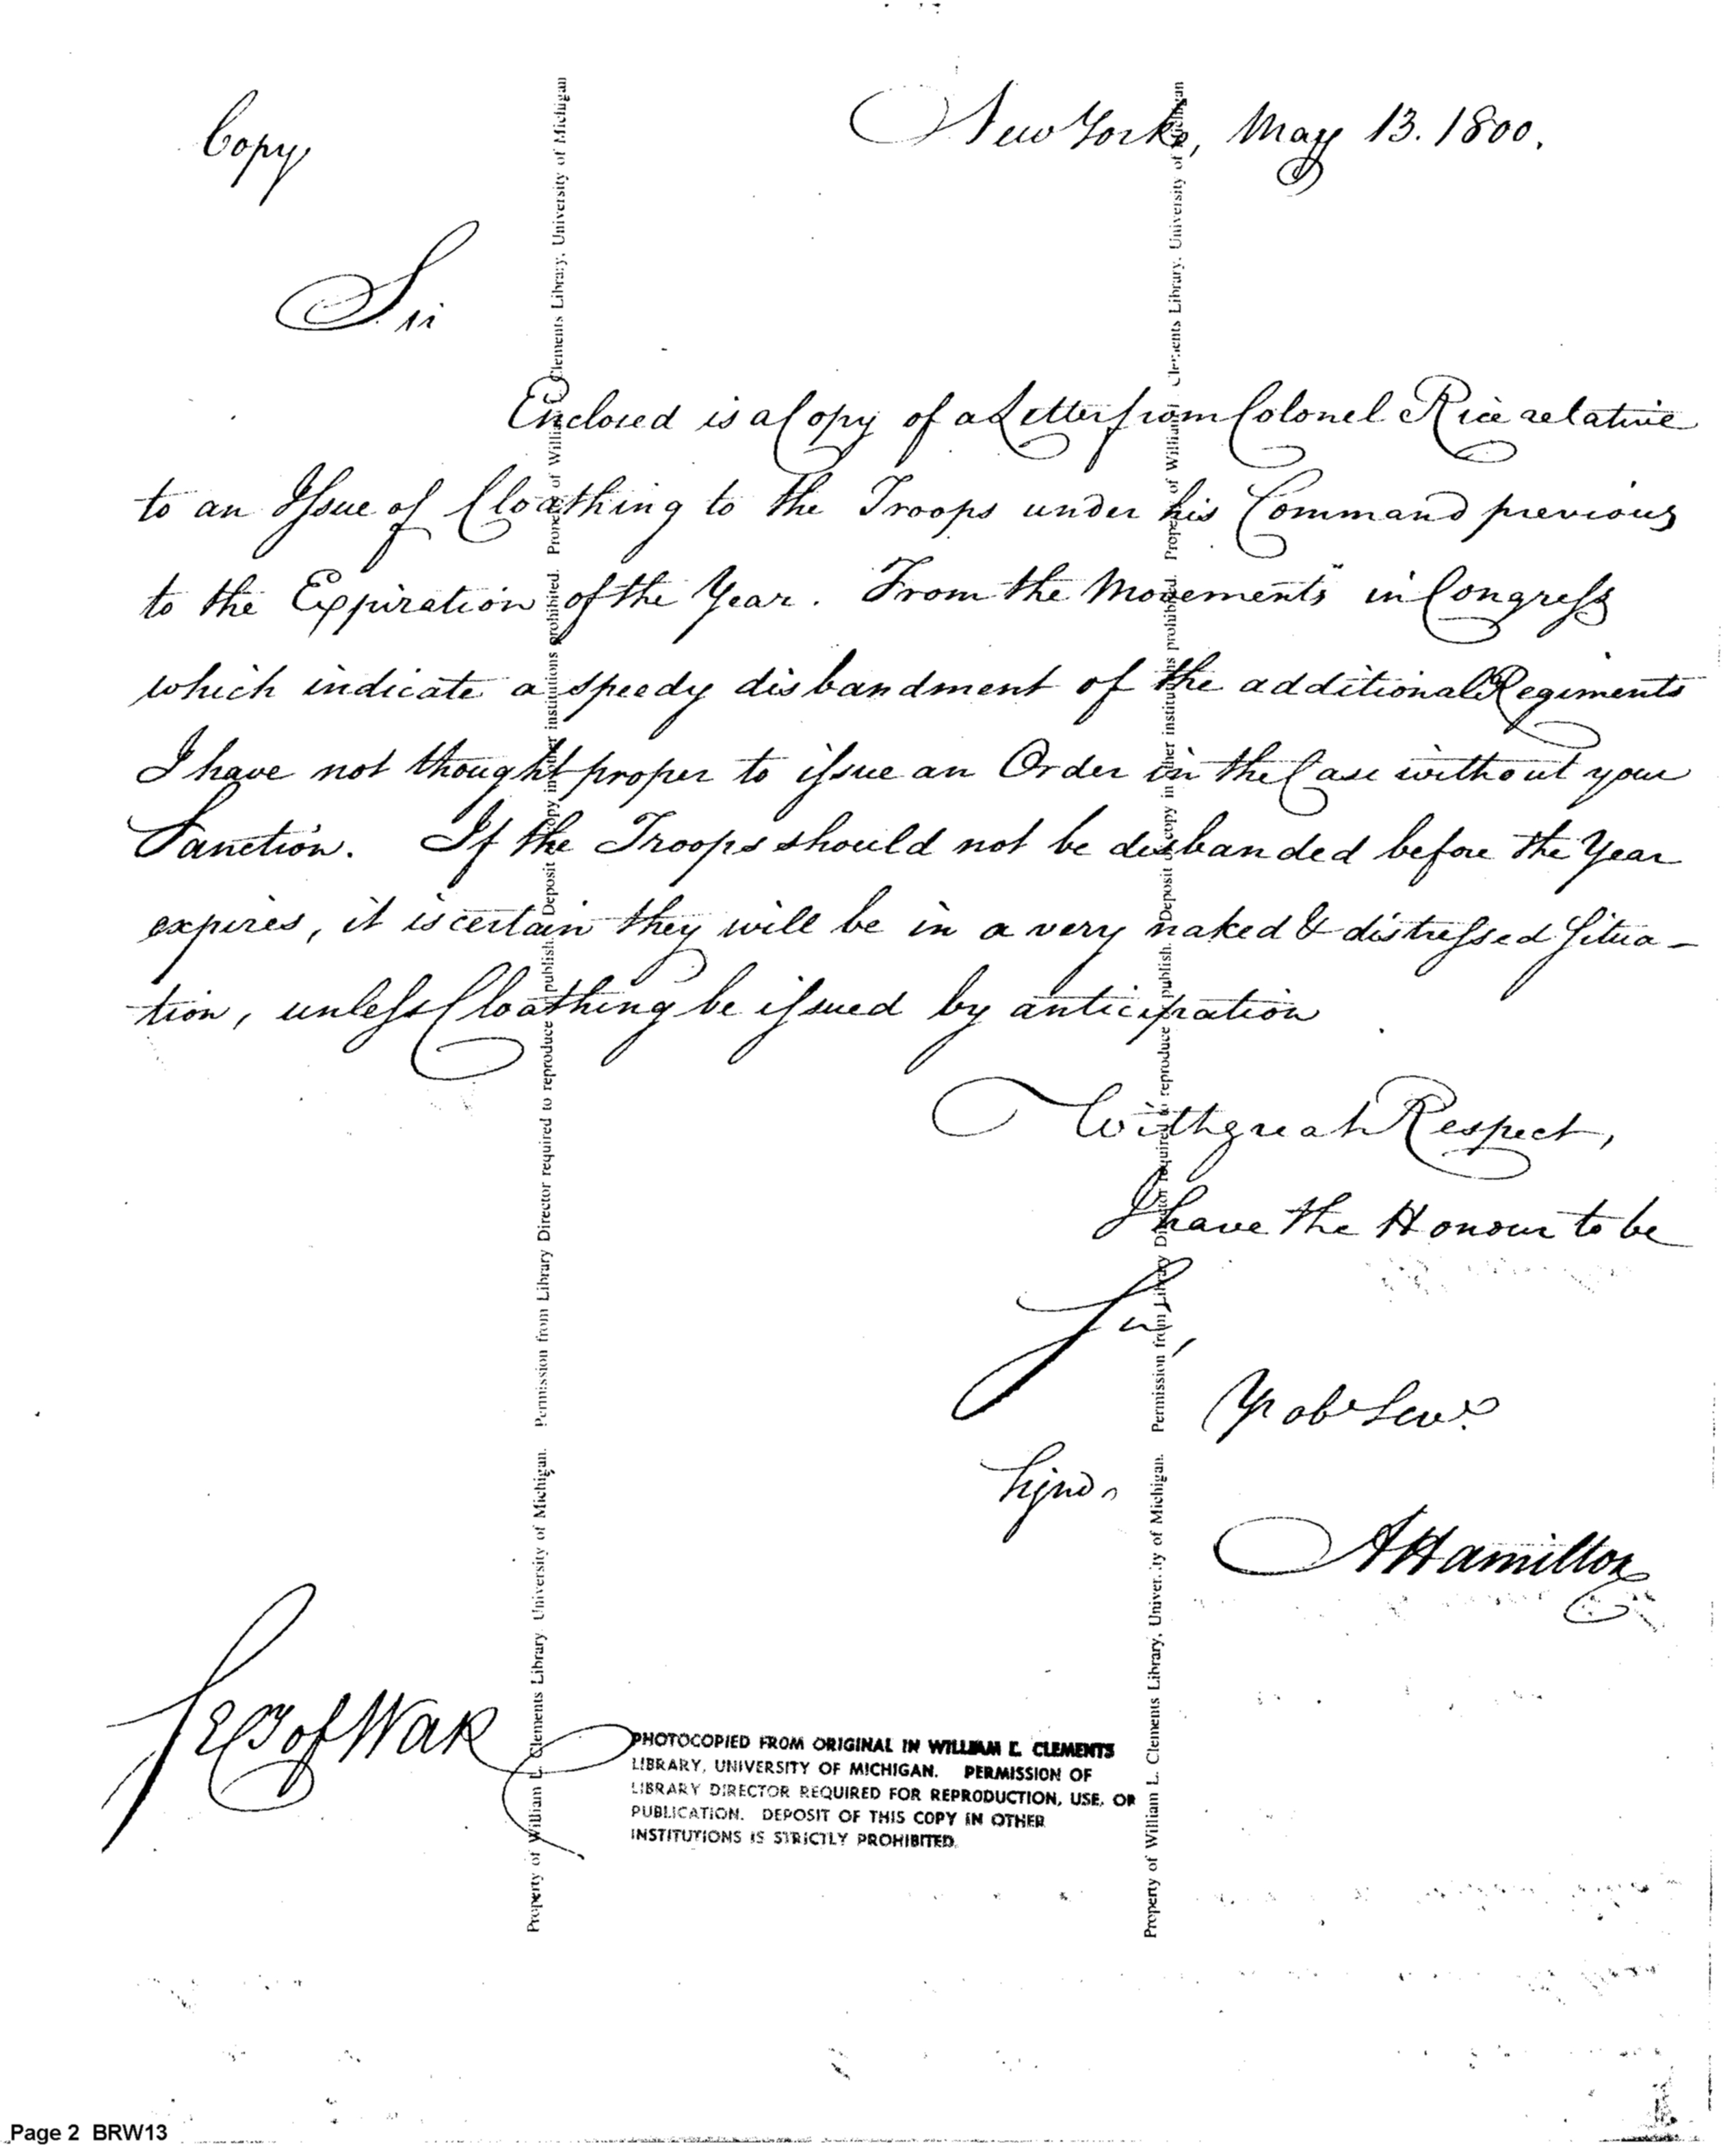 Copy
New York, May 13. 1800.
Sir
Enclosed is a Copy of a Letter from Colonel Rice relative
to an Issue of Cloathing to the Troops under his Command previous
to the Expiration of the Year. From the Movements in Congress
which indicate a speedy disbandment of the additional Regiments
I have not thought proper to issue an Order in the Case without your
Sanction. If the Troops should not be disbanded before the Year
expires, it is certain they will be in a very naked & distressed Situa-
tion, unless Cloathing be issued by anticipation
With great Respect,
I have the Honour to be
Sir,
Yr obt Servt
Signd.
A Hamilton
Secy of War
PHOTOCOPIED FROM ORIGINAL IN WILLIAM L. CLEMENTS
LIBRARY, UNIVERSITY OF MICHIGAN. PERMISSION OF
LIBRARY DIRECTOR REQUIRED FOR REPRODUCTION, USE, OR
PUBLICATION. DEPOSIT OF THIS COPY IN OTHER
INSTITUTIONS IS STRICTLY PROHIBITED.
Property of William L. Clements Library, University of Michigan. Permission from Library Director required to reproduce publish. Deposit copy in other institutions prohibited. Property of William L. Clements Library, University of Michigan
Property of William L. Clements Library, University of Michigan. Permission from Library Director required to reproduce publish. Deposit of copy in other institutions prohibited. Property of William L. Clements Library, University of Michigan
Page 2 BRW13